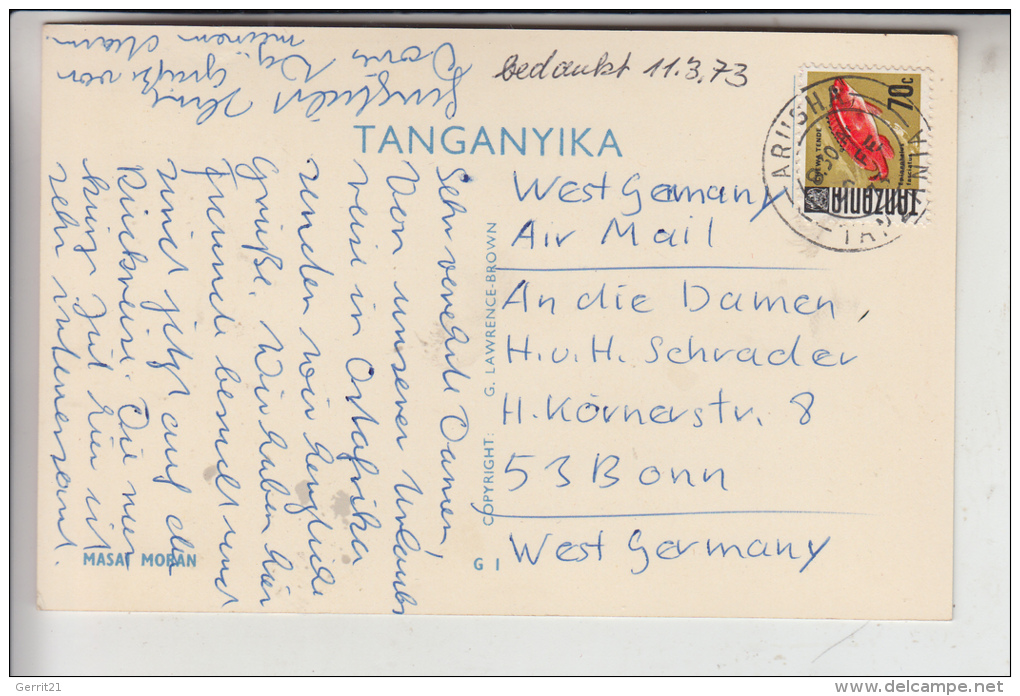 bedankt 11.3.73
TANGANYIKA
Sehr verehrte Damen!
Von unserer Urlaubs
reise in Ostafrika
senden wir herzliche
Grüße. Wir haben hier
Freunde besucht und
sind jetzt auf der
Rückreise. Die nur
kurze Zeit hier ist
sehr interessant.
Herzliche Grüße von
meinem Mann
COPYRIGHT: G. LAWRENCE-BROWN
MASAI MORAN
G I
West Germany
Air Mail
An die Damen,
H. u. H. Schrader
H. Körnerstr. 8
53 Bonn
West Germany
70c
TANZANIA
ARUSHA
TANZANIA
Gerrit21
delcampe.net